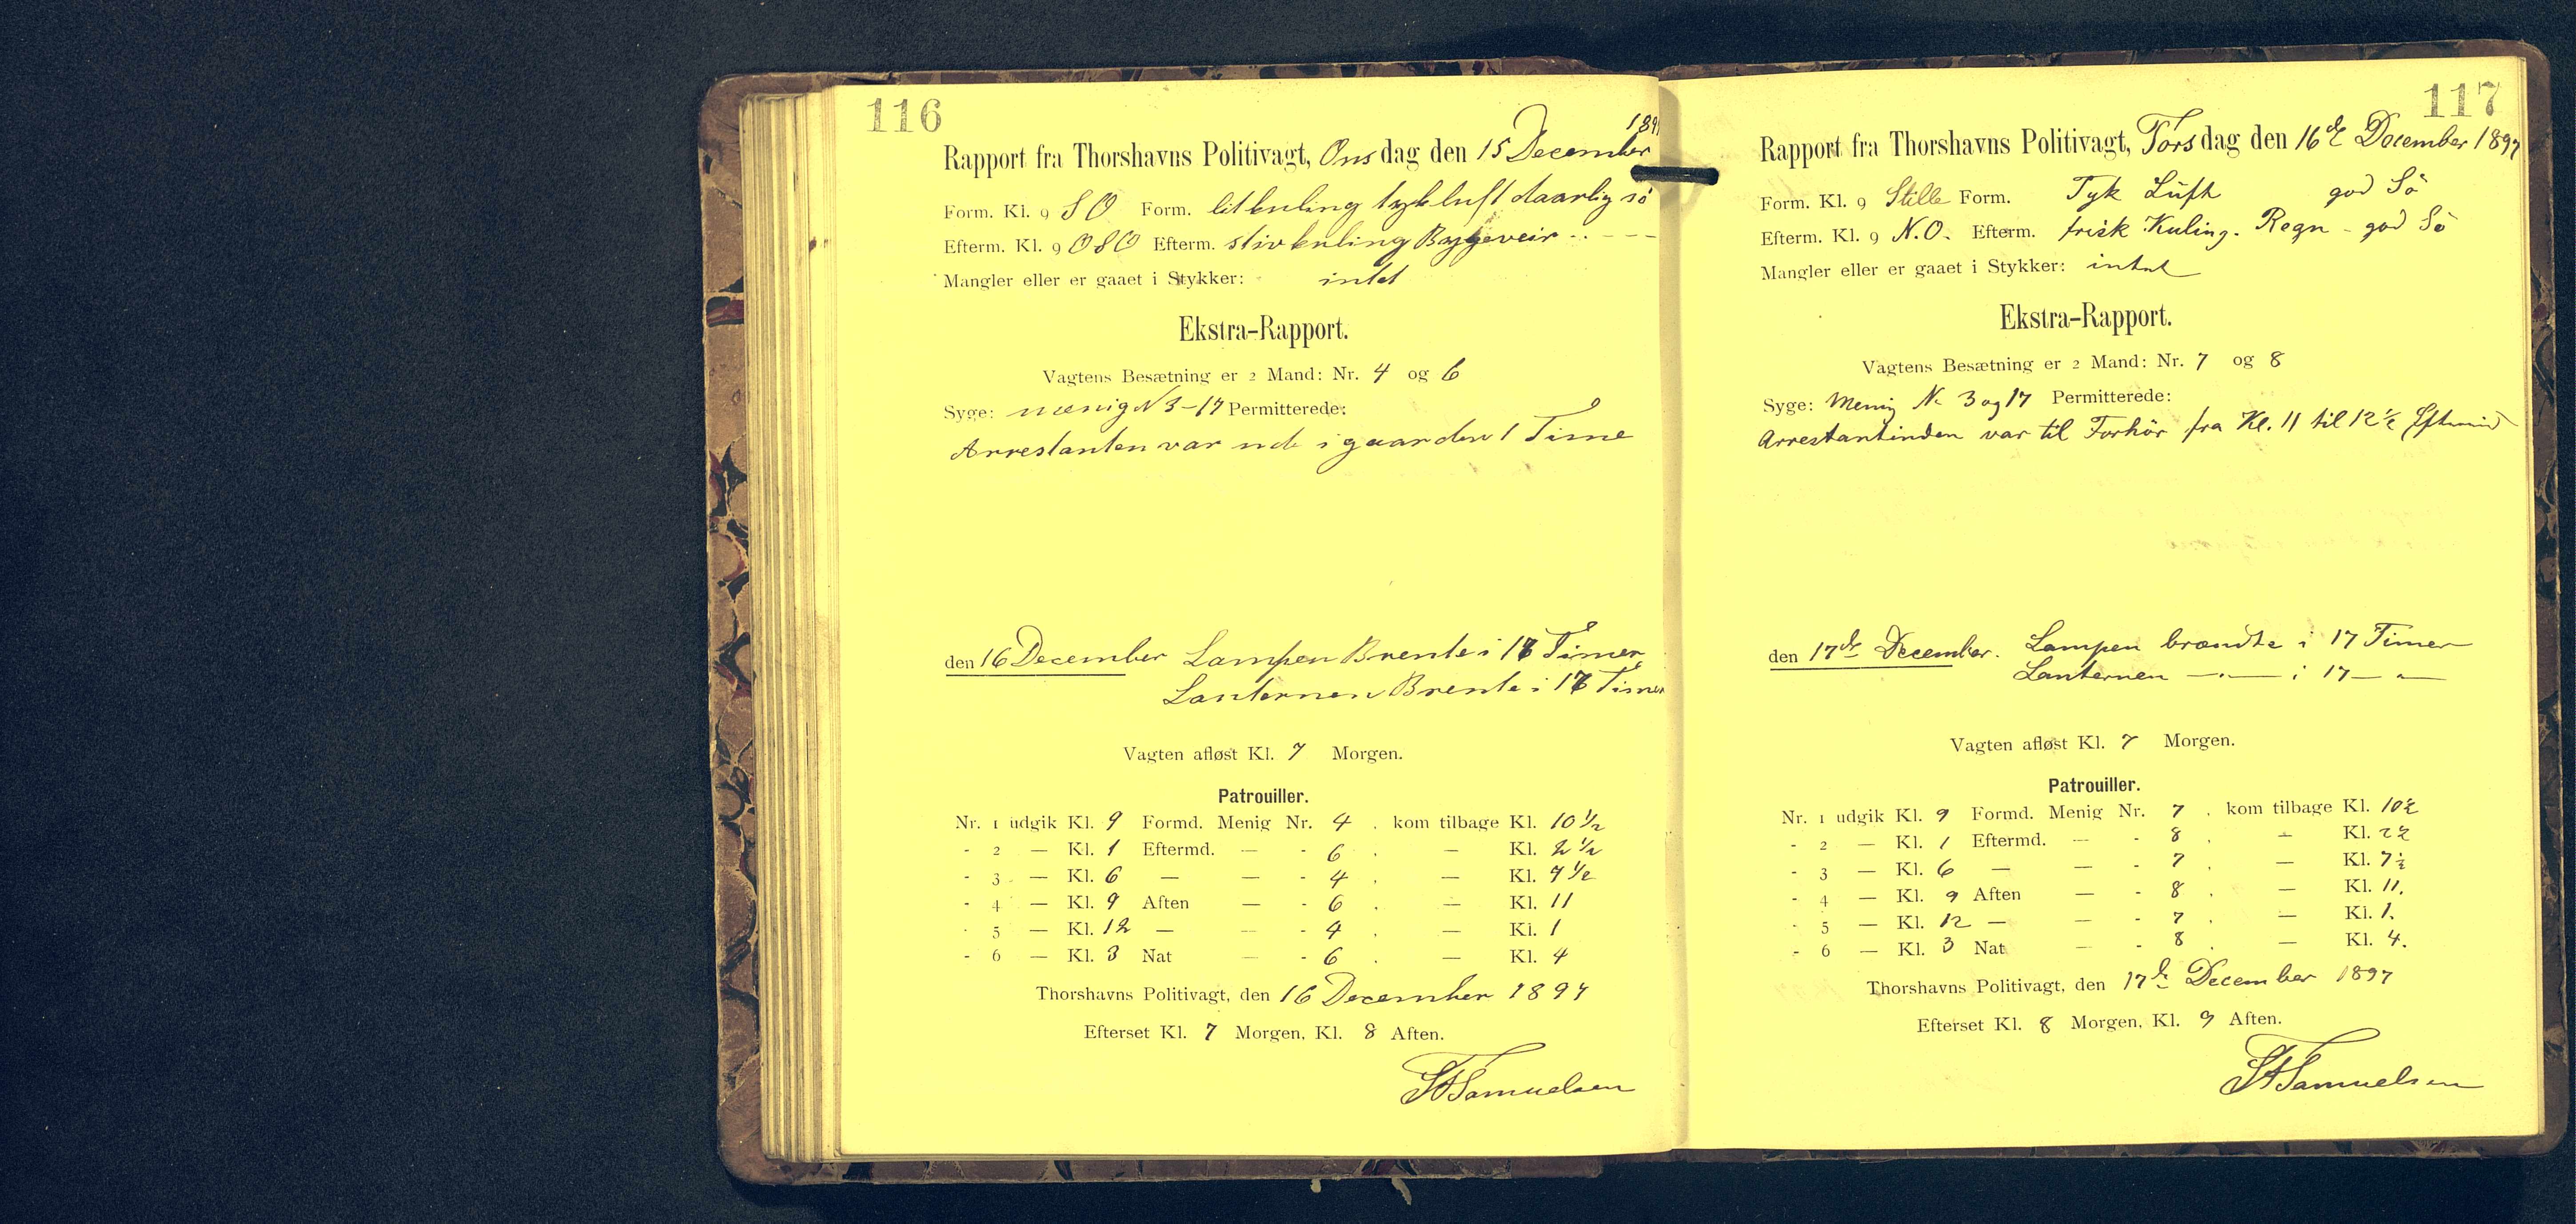 116
1897
Rapport fra Thorshavns Politivagt, Onsdag den 15 December
Form. Kl. 9 SO Form. litkuling tykluft daarlig sö
Efterm. Kl. 9 OSO Efterm. stivkuling Bygeveir - - - -
Mangler eller er gaaet i Stykker: intet
Ekstra-Rapport.
Vagtens Besætning er 2 Mand: Nr. 4 og 6
Syge: menig N 3-17 Permitterede:
Arrestanten var ude i gaarden 1 Time
den 16 December Lampen Brente i 17 Timer
Lanternen Brente i 17 Timer
Vagten afløst Kl. 7 Morgen.
Patrouiller.
Nr. 1 udgik Kl. 9 Formd. Menig Nr. 4 . kom tilbage Kl. 10 1/2
- 2 — Kl. 1 Eftermd. — - 6 . — Kl. 2 1/2
- 3 — Kl. 6 — — - 4 . — Kl. 7 1/2
- 4 — Kl. 9 Aften — - 6 . — Kl. 11
- 5 — Kl. 12 — — - 4 . — Kl. 1
- 6 — Kl. 3 Nat — - 6 . — Kl. 4
Thorshavns Politivagt, den 16 December 1897
Efterset Kl. 7 Morgen, Kl. 8 Aften.
Samuelsen
117
Rapport fra Thorshavns Politivagt, Torsdag den 16de December 1897
Form. Kl. 9 Stille Form. Tyk Luft god Sö
Efterm. Kl. 9 N.O. Efterm. frisk Kuling. Regn - god Sö
Mangler eller er gaaet i Stykker: intet
Ekstra-Rapport.
Vagtens Besætning er 2 Mand: Nr. 7 og 8
Syge: Menig N. 3 og 17 Permitterede:
Arrestantinden var til Forhör fra Kl. 11 til 12 1/2 Eftmid
den 17de December. Lampen brændte i 17 Timer
Lanternen —"— i 17 — " —
Vagten afløst Kl. 7 Morgen.
Patrouiller.
Nr. 1 udgik Kl. 9 Formd. Menig Nr. 7 . kom tilbage Kl. 10 1/2
- 2 — Kl. 1 Eftermd. — - 8 . — Kl. 2 1/2
- 3 — Kl. 6 — — - 7 . — Kl. 7 1/2
- 4 — Kl. 9 Aften — - 8 . — Kl. 11.
- 5 — Kl. 12 — — - 7 . — Kl. 1.
- 6 — Kl. 3 Nat — - 8 . — Kl. 4.
Thorshavns Politivagt, den 17de December 1897
Efterset Kl. 8 Morgen, Kl. 9 Aften.
Samuelsen